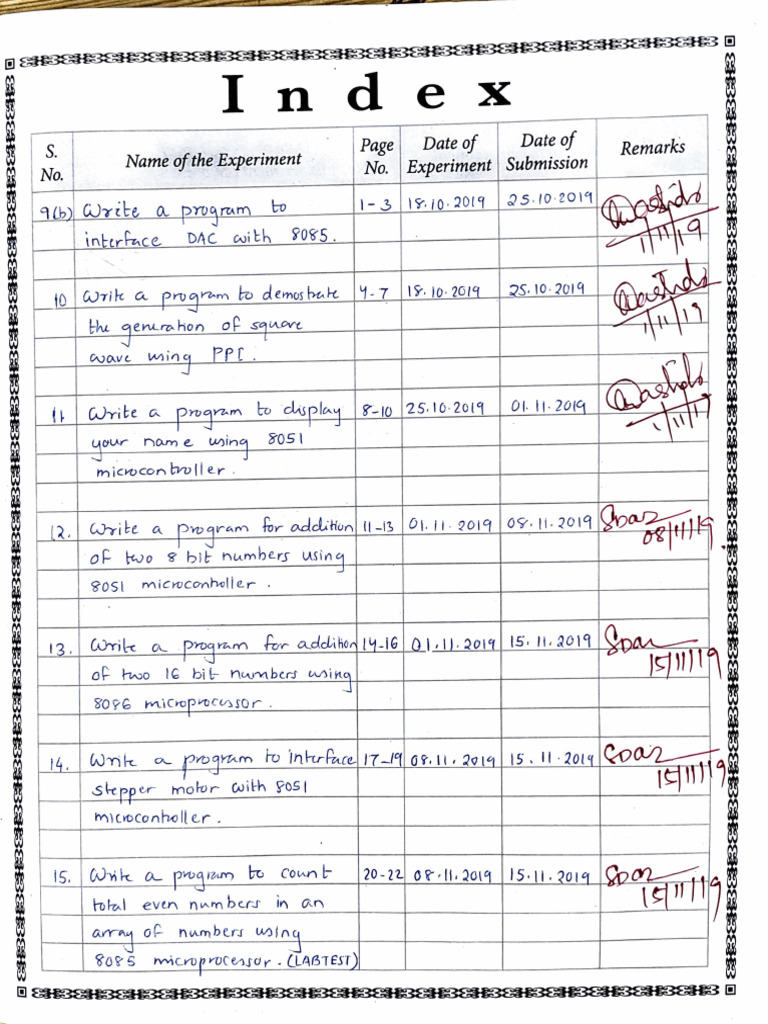 Index
S. No.
Name of the Experiment
Page No.
Date of Experiment
Date of Submission
Remarks
9(b) Write a program to 1-3 18.10.2019 25.10.2019
interface DAC with 8085.
1/11/19
10 Write a program to demostrate 4-7 18.10.2019 25.10.2019
the generation of square
wave using PPI.
1/11/19
11 Write a program to display 8-10 25.10.2019 01.11.2019
your name using 8051
1/11/19
microcontroller.
12. Write a program for addition 11-13 01.11.2019 08.11.2019
08/11/19
of two 8 bit numbers using
8051 microcontroller.
13. Write a program for addition 14-16 01.11.2019 15.11.2019
15/11/19
of two 16 bit numbers using
8086 microprocessor.
14. Write a program to interface 17-19 08.11.2019 15.11.2019
15/11/19
stepper motor with 8051
microcontroller.
15. Write a program to count 20-22 08.11.2019 15.11.2019
15/11/19
total even numbers in an
array of numbers using
8085 microprocessor. (LABTEST)